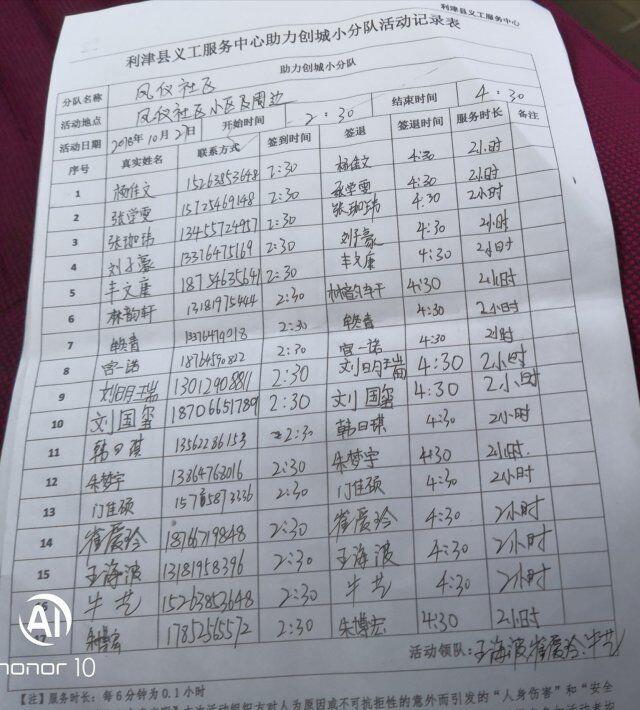 利津县义工服务中心
利津县义工服务中心助力创城小分队活动记录表
助力创城小分队
分队名称 凤仪社区
活动地点 凤仪社区小区及周边
活动日期 2018年10月27日 开始时间 2:30 结束时间 4:30
序号 真实姓名 联系方式 签到时间 签退 签退时间 服务时长 备注
1 杨佳文 15263853648 2:30 杨佳文 4:30 2小时
2 张学雯 15725469148 2:30 张学雯 4:30 2小时
3 张珈玮 13455724957 2:30 张珈玮 4:30 2小时
4 刘子豪 13376475169 2:30 刘子豪 4:30 2小时
5 丰文康 18754635641 2:30 丰文康 4:30 2小时
6 林韵轩 13181975444 2:30 林韵轩 4:30 2小时
7 2:30 4:30 2小时
8 宫一诺 18764590822 2:30 宫一诺 4:30 2小时
9 刘明瑞 13012908811 2:30 刘明瑞 4:30 2小时
10 刘国玺 18706651789 2:30 刘国玺 4:30 2小时
11 韩日琪 13562286153 2:30 韩日琪 4:30 2小时
12 朱梦宇 13864768016 2:30 朱梦宇 4:30 2小时
13 门佳硕 2:30 门佳硕 4:30 2小时
14 崔爱玲 18766719848 2:30 崔爱玲 4:30 2小时
15 王海波 13181958396 2:30 王海波 4:30 2小时
16 牛艺 15263853648 2:30 牛艺 4:30 2小时
17 17852565572 2:30 4:30 2小时
活动领队:王海波 崔爱玲 牛艺
【注】服务时长:每6分钟为0.1小时
动组织方对人为原因或不可抗拒性的意外而引发的“人身伤害”和“安全
AI
honor 10